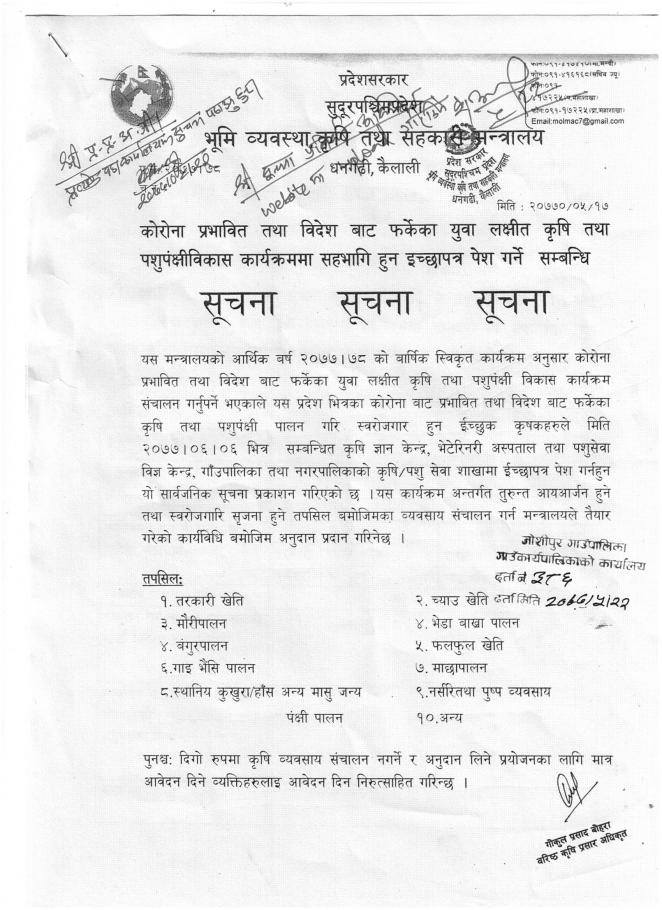 प्रदेशसरकार
सुदूरपश्चिमप्रदेश
भूमि व्यवस्था कृषि तथा सहकारी मन्त्रालय
धनगढी, कैलाली
फोन:०९१-
Email:molmac7@gmail.com
website मा
प्रदेश सरकार
सुदूरपश्चिम प्रदेश
भूमि व्यवस्था कृषि तथा सहकारी मन्त्रालय
धनगढी, कैलाली
मिति : २०७७०/०५/१७
कोरोना प्रभावित तथा विदेश बाट फर्केका युवा लक्षीत कृषि तथा
पशुपंक्षीविकास कार्यक्रममा सहभागि हुन इच्छापत्र पेश गर्ने सम्बन्धि
सूचना सूचना सूचना
यस मन्त्रालयको आर्थिक बर्ष २०७७।७८ को बार्षिक स्विकृत कार्यक्रम अनुसार कोरोना
प्रभावित तथा विदेश बाट फर्केका युवा लक्षीत कृषि तथा पशुपंक्षी विकास कार्यक्रम
संचालन गर्नुपर्ने भएकाले यस प्रदेश भित्रका कोरोना बाट प्रभावित तथा विदेश बाट फर्केका
कृषि तथा पशुपंक्षी पालन गरि स्वरोजगार हुन ईच्छुक कृषकहरुले मिति
२०७७।०६।०६ भित्र सम्बन्धित कृषि ज्ञान केन्द्र, भेटेरिनरी अस्पताल तथा पशुसेवा
विज्ञ केन्द्र, गाँउपालिका तथा नगरपालिकाको कृषि/पशु सेवा शाखामा ईच्छापत्र पेश गर्नहुन
यो सार्वजनिक सूचना प्रकाशन गरिएको छ ।यस कार्यक्रम अन्तर्गत तुरुन्त आयआर्जन हुने
तथा स्वरोजगारि सृजना हुने तपसिल बमोजिमका व्यवसाय संचालन गर्न मन्त्रालयले तैयार
गरेको कार्यविधि बमोजिम अनुदान प्रदान गरिनेछ ।
जोशीपुर गाउँपालिका
गाउँकार्यपालिकाको कार्यालय
दर्ता नं ३८६
दर्ता मिति २०७७/५/२२
तपसिल:
१. तरकारी खेति २. च्याउ खेति
३. मौरीपालन ४. भेडा बाख्रा पालन
४. बंगुरपालन ५. फलफुल खेति
६.गाइ भैंसि पालन ७. माछापालन
८.स्थानिय कुखुरा/हाँस अन्य मासु जन्य ९.नर्सरितथा पुष्प व्यवसाय
पंक्षी पालन १०.अन्य
पुनश्च: दिगो रुपमा कृषि व्यवसाय संचालन नगर्ने र अनुदान लिने प्रयोजनका लागि मात्र
आवेदन दिने व्यक्तिहरुलाइ आवेदन दिन निरुत्साहित गरिन्छ ।
गोकुल प्रसाद बोहरा
वरिष्ठ कृषि प्रसार अधिकृत